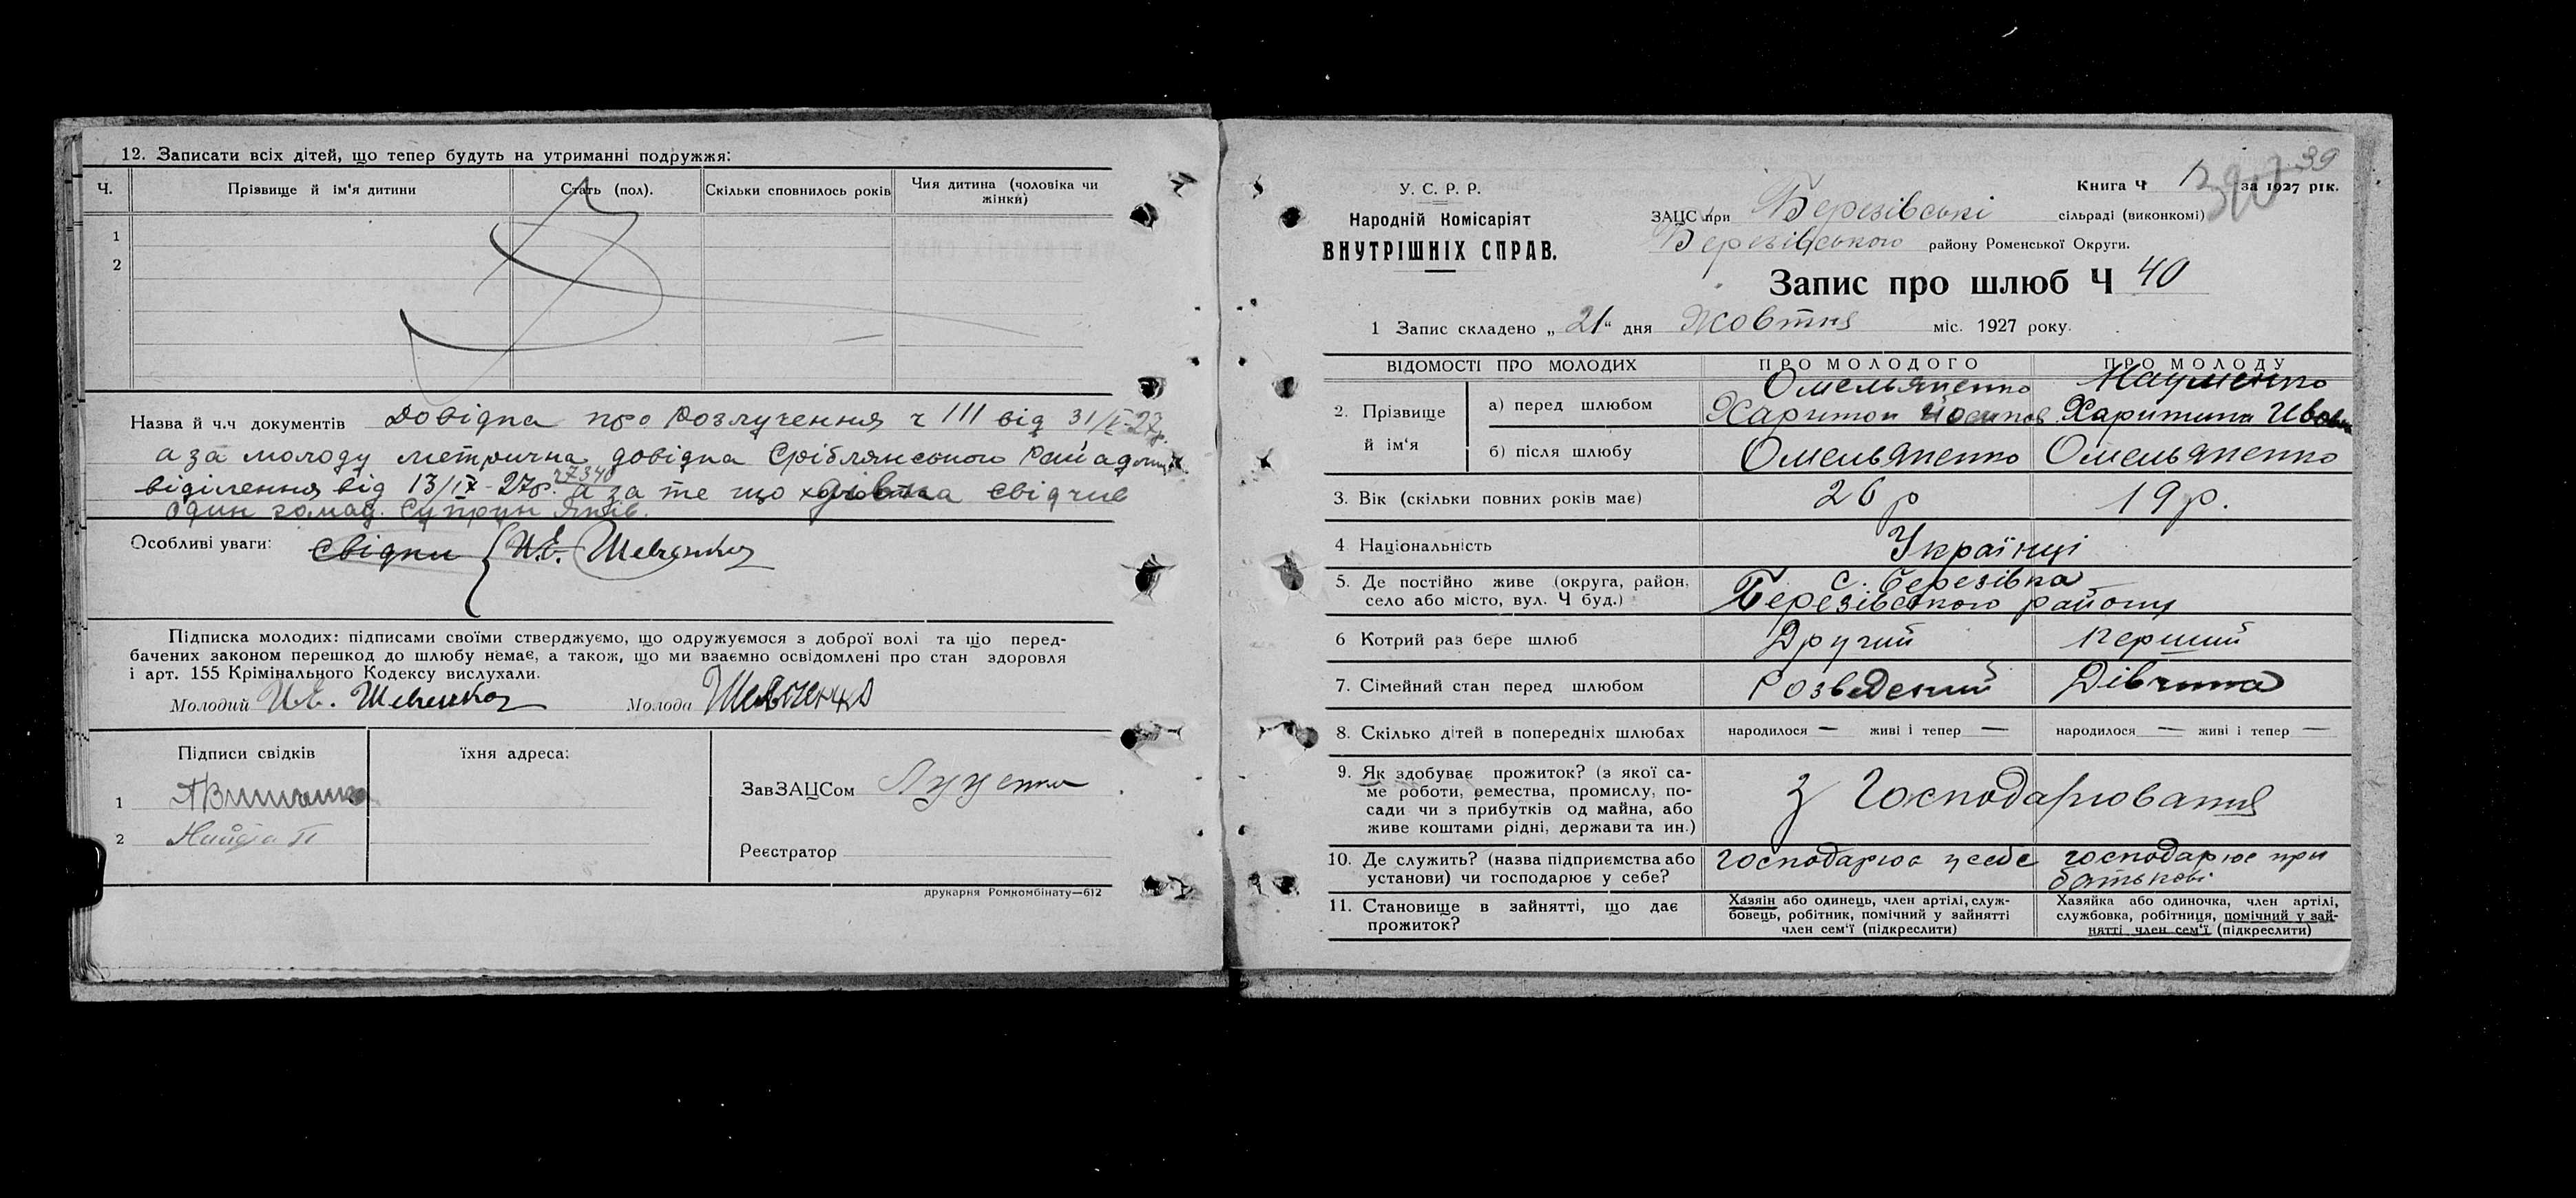 12. Записати всіх дітей, що тепер будуть на утриманні подружжя:
Ч. Прізвище й ім'я дитини Стать (пол). Скільки сповнилось років Чия дитина (чоловіка чи жінки)
1
2
Назва й ч.ч документів Довідка про Розлучення ч 111 від 31/
а за молоду метрична довідка Сріблянського
27340
відділення від 13/ІХ-27р. а за те що свідчив
один громад. Супрун Яків.
Особливі уваги: Свідки И.Е. Шевченко
Підписка молодих: підписами своїми стверджуємо, що одружуємося з доброї волі та що перед-
бачених законом перешкод до шлюбу немає, а також, що ми взаємно освідомлені про стан здоровля
і арт. 155 Крімінального Кодексу вислухали.
Молодий И.Е. Шевченко Молода Шевченко
Підписи свідків їхня адреса:
ЗавЗАЦСом
1
2
Реєстратор
друкарня Ромкомбінату—612
39
У. С. Р. Р.
Народній Комісаріят
ВНУТРІШНІХ СПРАВ.
Книга Ч за 1927 рік.
ЗАЦС при Березівські сільраді (виконкомі)
Березівського району Роменської Округи.
Запис про шлюб Ч 40
1 Запис складено „ 21 " дня Жовтня міс. 1927 року.
ВІДОМОСТІ ПРО МОЛОДИХ ПРО МОЛОДОГО ПРО МОЛОДУ
2. Прізвище й ім'я
а) перед шлюбом Омельяненко Харитон Йосипов Науменко Харитина
б) після шлюбу Омельяненко Омельяненко
3. Вік (скільки повних років має) 26 р 19 р.
4 Національність Українці
5. Де постійно живе (округа, район, с. Березівка
село або місто, вул. Ч буд.) Березівського району
6 Котрий раз бере шлюб Другий перший
7. Сімейний стан перед шлюбом Розведений Дівчина
8. Скілько дітей в попередніх шлюбах народилося — живі і тепер — народилося — живі і тепер —
9. Як здобуває прожиток? (з якої са-
ме роботи, ремества, промислу, по-
сади чи з прибутків од майна, або
живе коштами рідні, держави та ин.)
З Господарювання
10. Де служить? (назва підприємства або
установи) чи господарює у себе?
господарює у себе господарює при батькові
11. Становище в зайнятті, що дає
прожиток?
Хазяін або одинець, член артілі, служ-
бовець, робітник, помічний у зайнятті
член сем'ї (підкреслити)
Хазяйка або одиночка, член артілі,
службовка, робітниця, помічний у зай-
нятті член сем'ї (підкреслити)